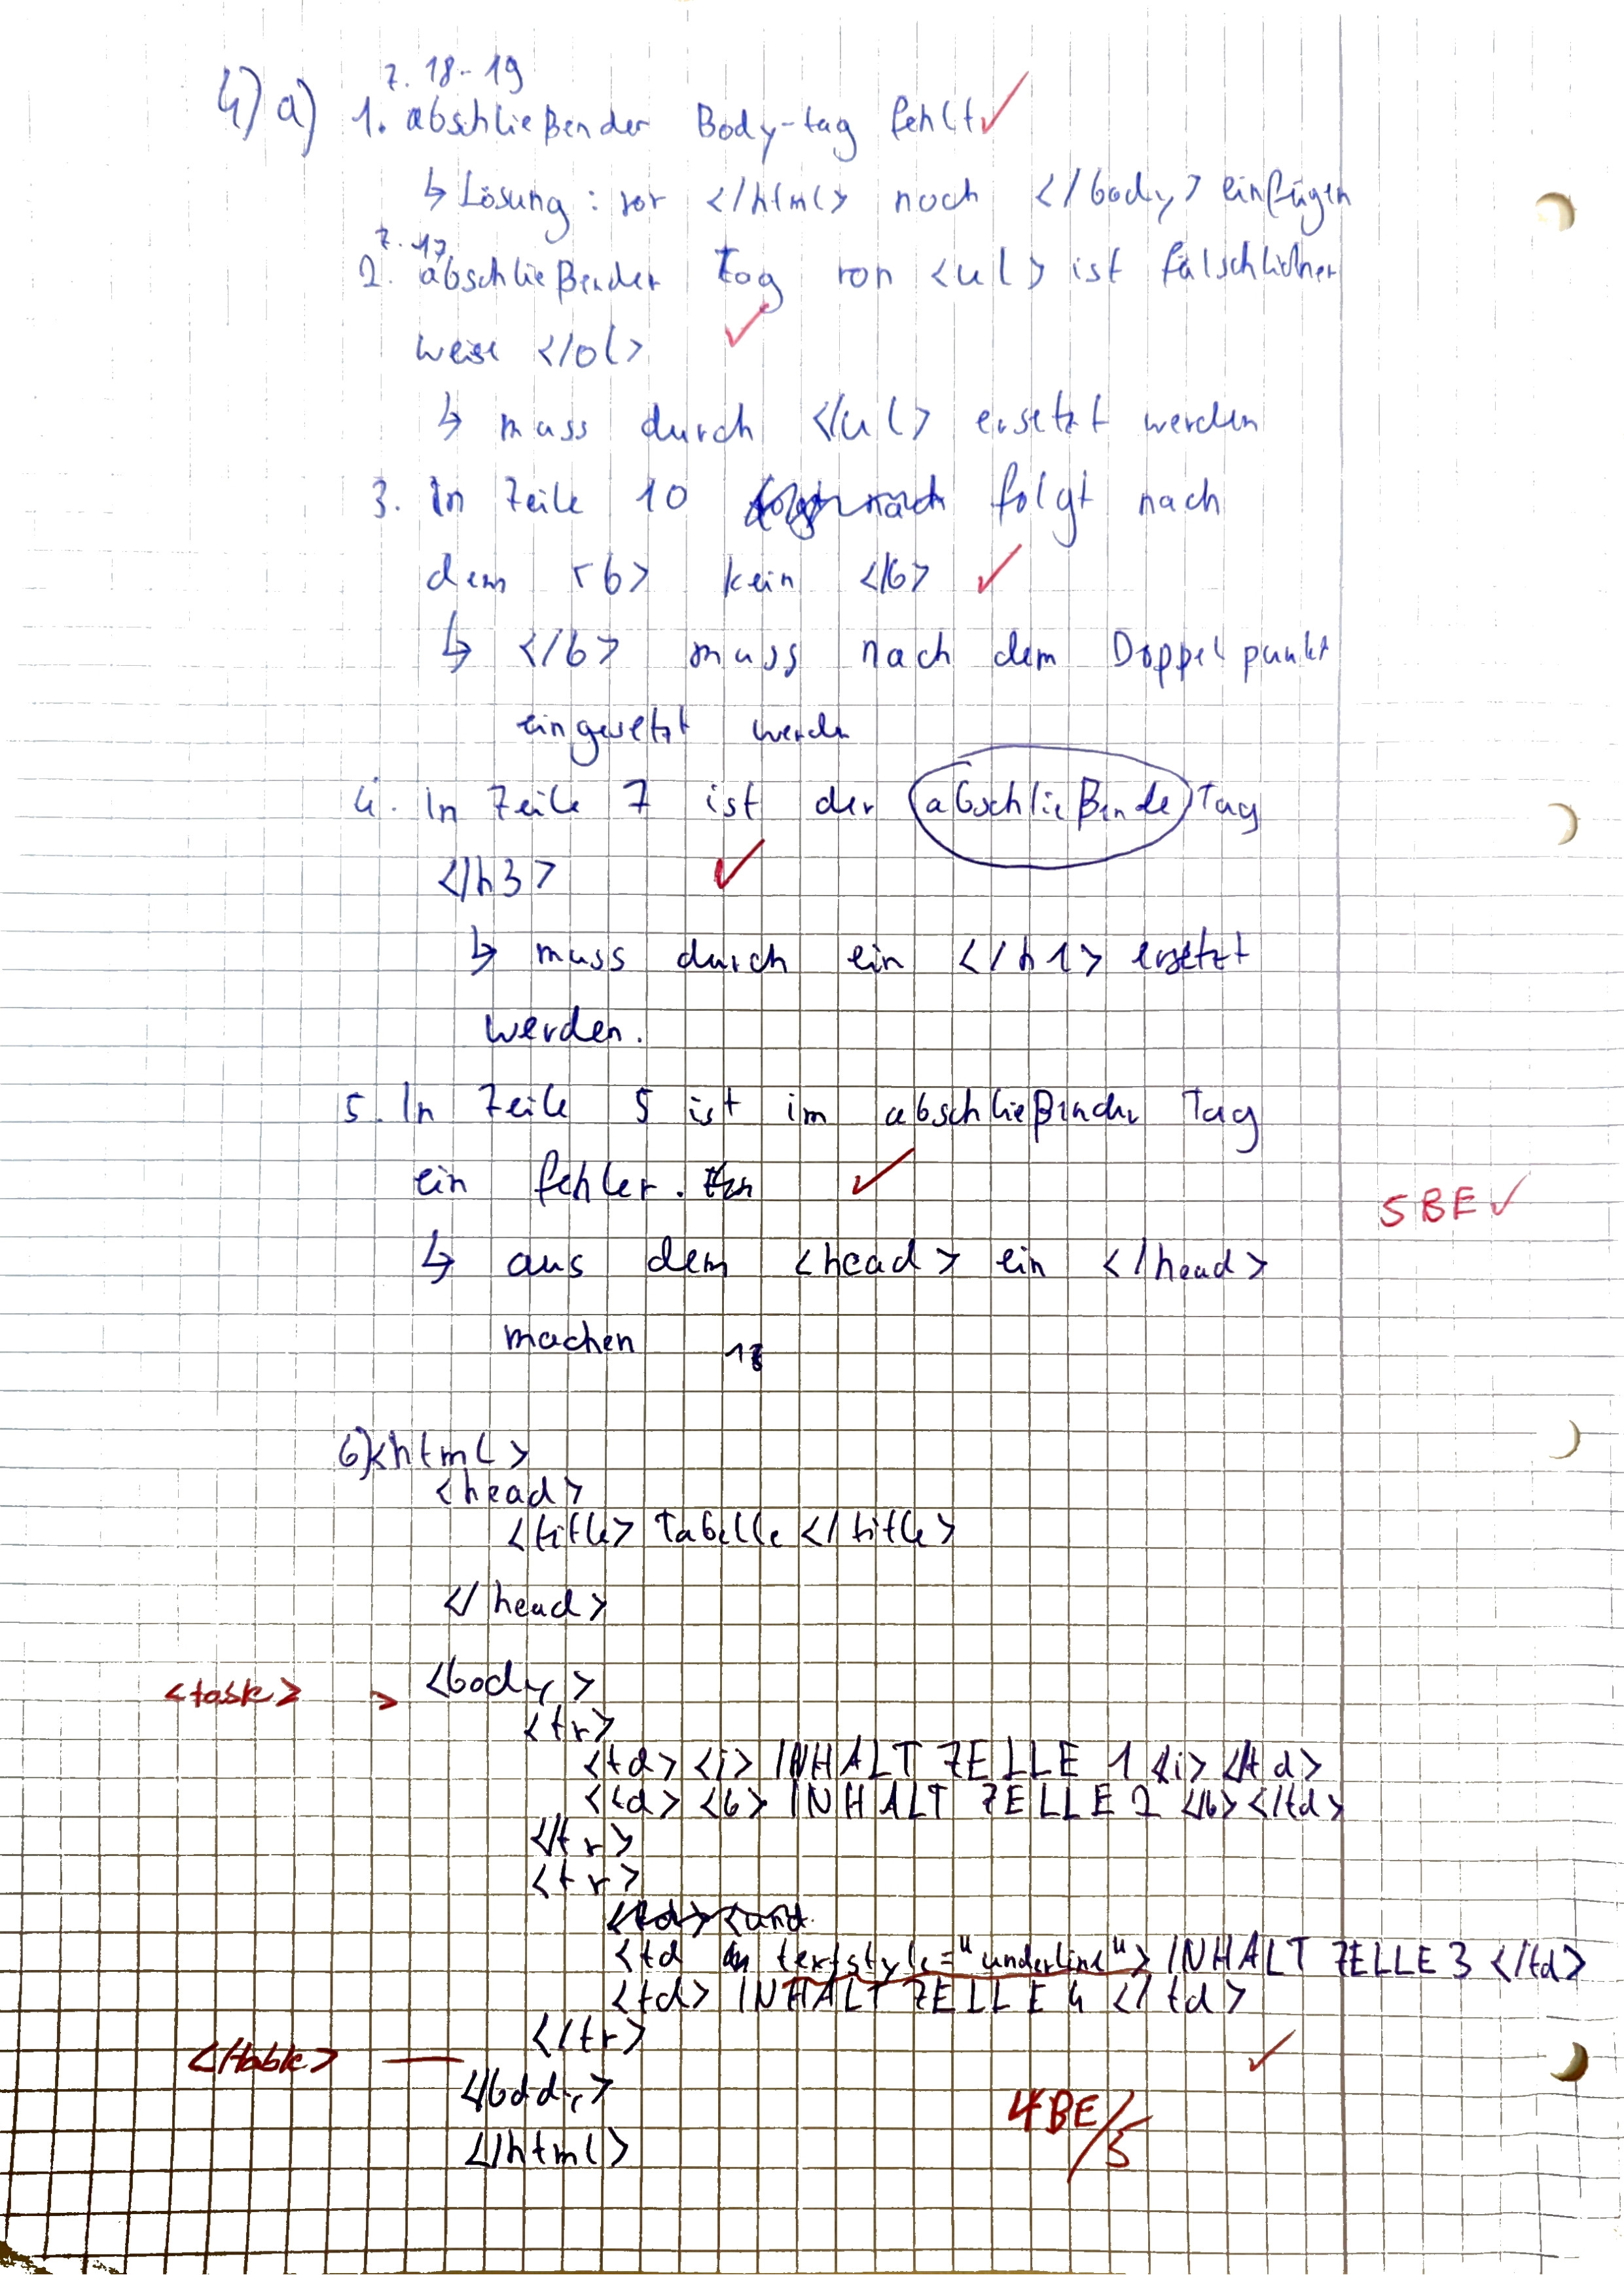 Z. 18-19
4) a) 1. abschließender Body-tag fehlt ✓
↳ Lösung: vor </html> noch </body> einfügen
Z. 17
2. abschließender Tag von <ul> ist fälschlicher
weise </ol> ✓
↳ muss durch </ul> ersetzt werden
3. In Zeile 10 folgt nach
dem <b> kein </b> ✓
↳ </b> muss nach dem Doppelpunkt
eingesetzt werden
4. In Zeile 7 ist der abschließende Tag
</h3> ✓
↳ muss durch ein </h1> ersetzt
werden.
5. In Zeile 5 ist im abschließender Tag
ein fehler. ✓
5 BE ✓
↳ aus dem <head> ein </head>
machen
b) <html>
<head>
<title> Tabelle </title>
</head>
<table> > <body>
<tr>
<td> <i> INHALT ZELLE 1 </i> </td>
<td> <b> INHALT ZELLE 2 </b> </td>
</tr>
<tr>
<td textstyle="underline"> INHALT ZELLE 3 </td>
<td> INHALT ZELLE 4 </td>
</tr>
</table> — ✓
</body>
4 BE/5
</html>